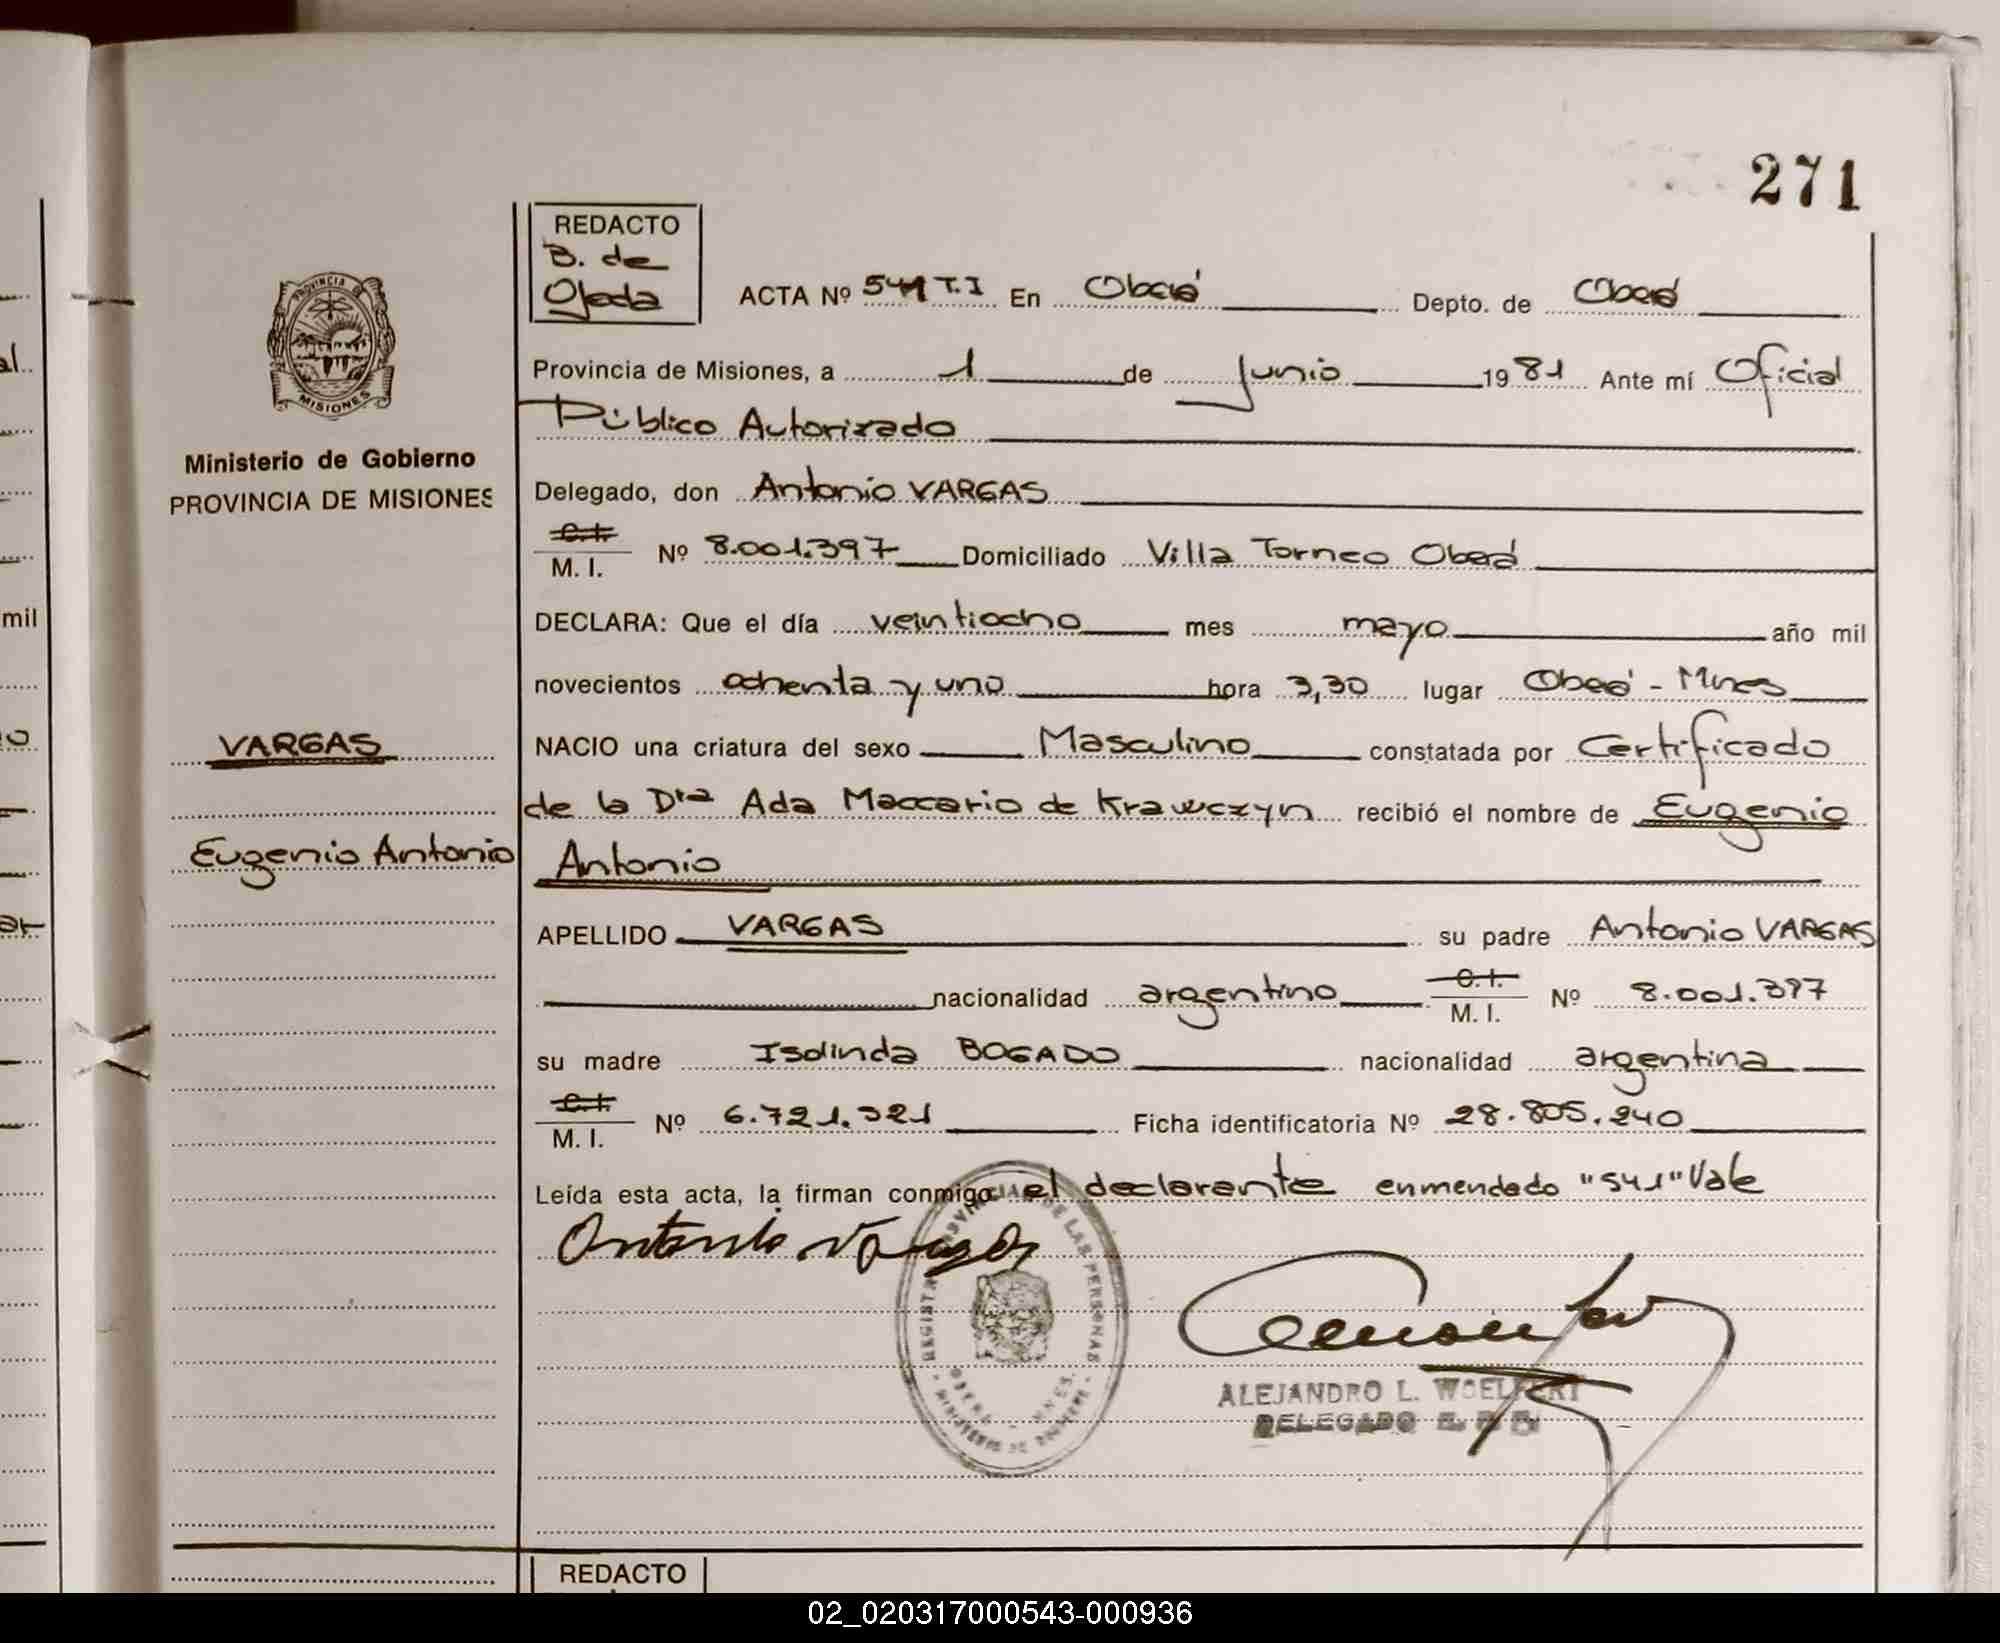 271
REDACTO
B. de
Ojeda
ACTA Nº 541 T.I En Oberá Depto. de Oberá
Provincia de Misiones, a 1 de Junio 1981 Ante mí Oficial
Público Autorizado
PROVINCIA DE
MISIONES
Ministerio de Gobierno
PROVINCIA DE MISIONES
Delegado, don Antonio VARGAS
C.I.
M. I. Nº 8.001.397 Domiciliado Villa Torneo Oberá
DECLARA: Que el día veintiocho mes mayo año mil
novecientos ochenta y uno hora 3,30 lugar Oberá - Mnes
VARGAS
NACIO una criatura del sexo Masculino constatada por Certificado
de la Dra Ada Maccario de Krawczyn recibió el nombre de Eugenio
Eugenio Antonio
Antonio
APELLIDO VARGAS su padre Antonio VARGAS
nacionalidad argentino C.I. M. I. Nº 8.001.397
su madre Isolinda BOGADO nacionalidad argentina
C.I.
M. I. Nº 6.721.321 Ficha identificatoria Nº 28.805.240
Leída esta acta, la firman conmigo el declarante enmendado "541" Vale
Antonio Vargas
REGISTRO PROVINCIAL DE LAS PERSONAS
MINISTERIO DE GOBIERNO
OBERA - MNES.
ALEJANDRO L. WOELFERT
DELEGADO
REDACTO
mil
al
ar
02_020317000543-000936